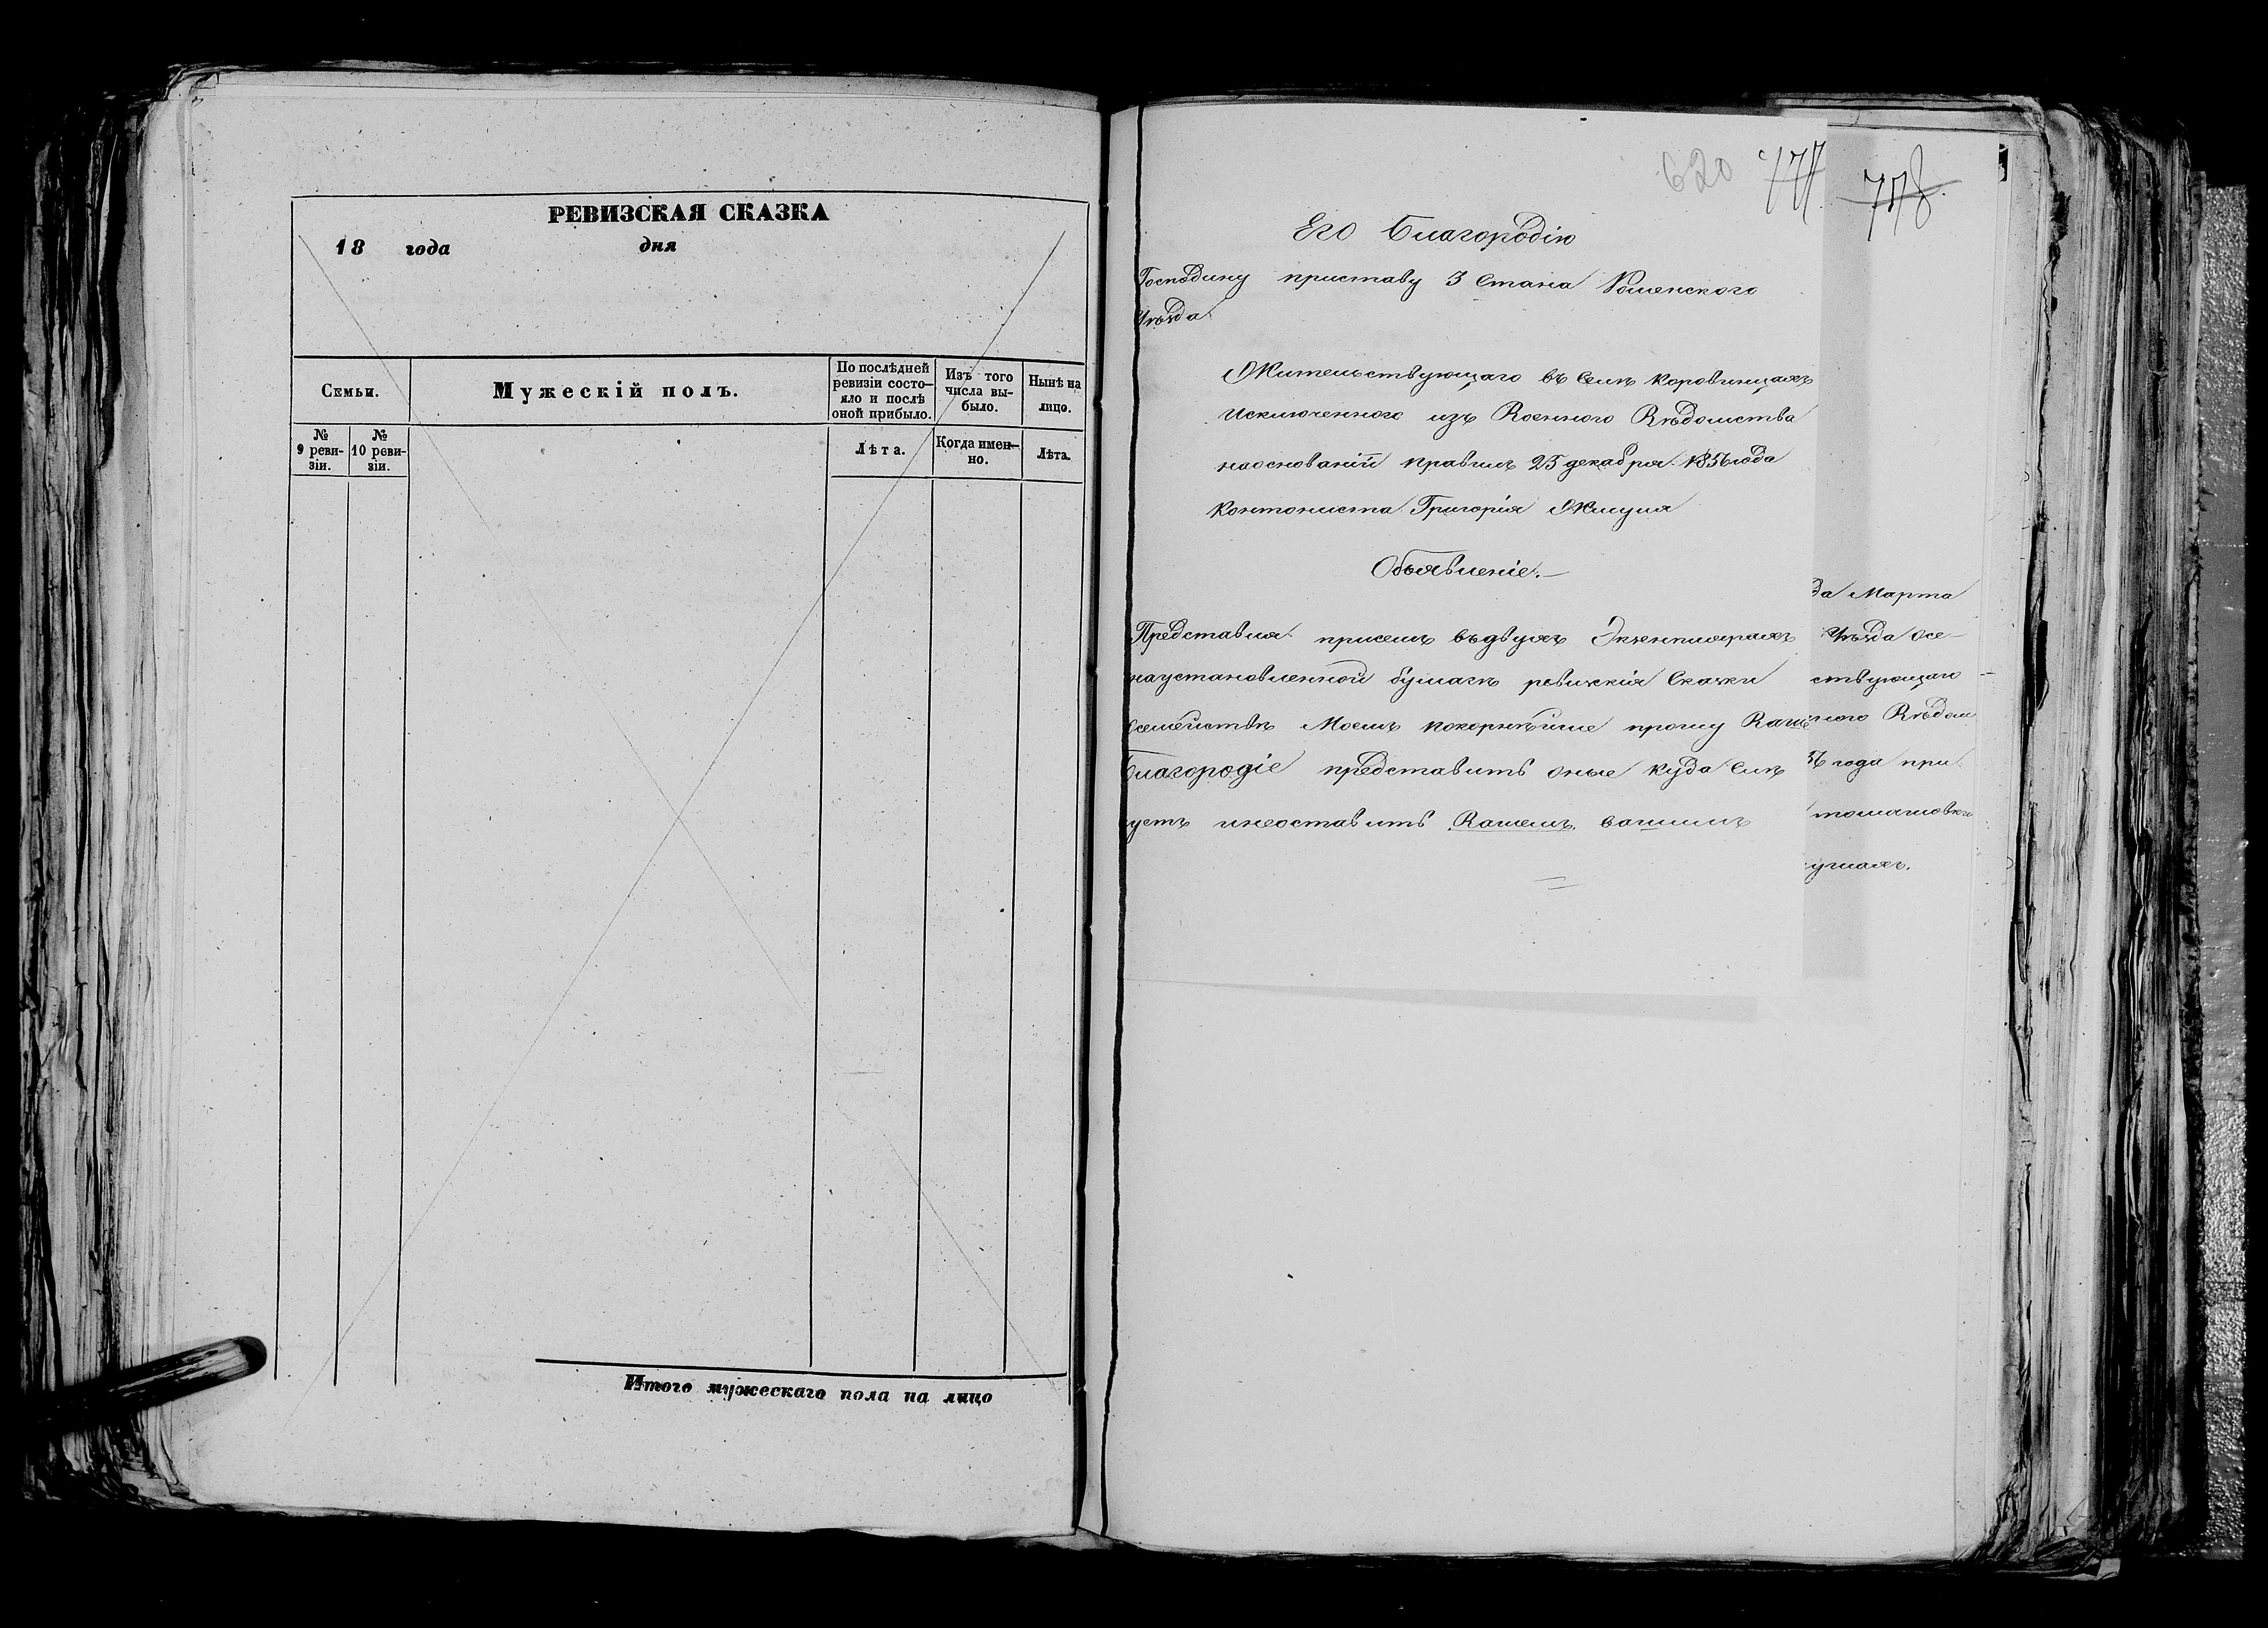 РЕВИЗСКАЯ СКАЗКА
18 года дня
Семьи.
Мужескій полъ.
По послѣдней ревизіи состояло и послѣ оной прибыло.
Изъ того числа выбыло.
Нынѣ на лицо.
№ 9 ревизіи.
№ 10 ревизіи.
Лѣта.
Когда именно.
Лѣта.
Итого мужескаго пола на лицо
620 777 778
Его Благородію
Господину приставу 3 Стана Роменского
Уѣзда
Жительствующаго въ Селѣ Коровинцахъ
Исключенного изъ Военного Вѣдомства
наоснованіи правилъ 25 декабря 1856 года
Кантониста Григорія
Объявленіе.
Представляя присемъ въдвухъ Экземплярахъ
наустановленной бумагѣ ревизкія Сказки
семействѣ Моемъ покорнѣйше прошу Ваше
Благородіе представить оные куда Слѣ
уетъ инеоставить
да Марта
Уѣзда осе-
ствующаго
ного Вѣдом
56 года при